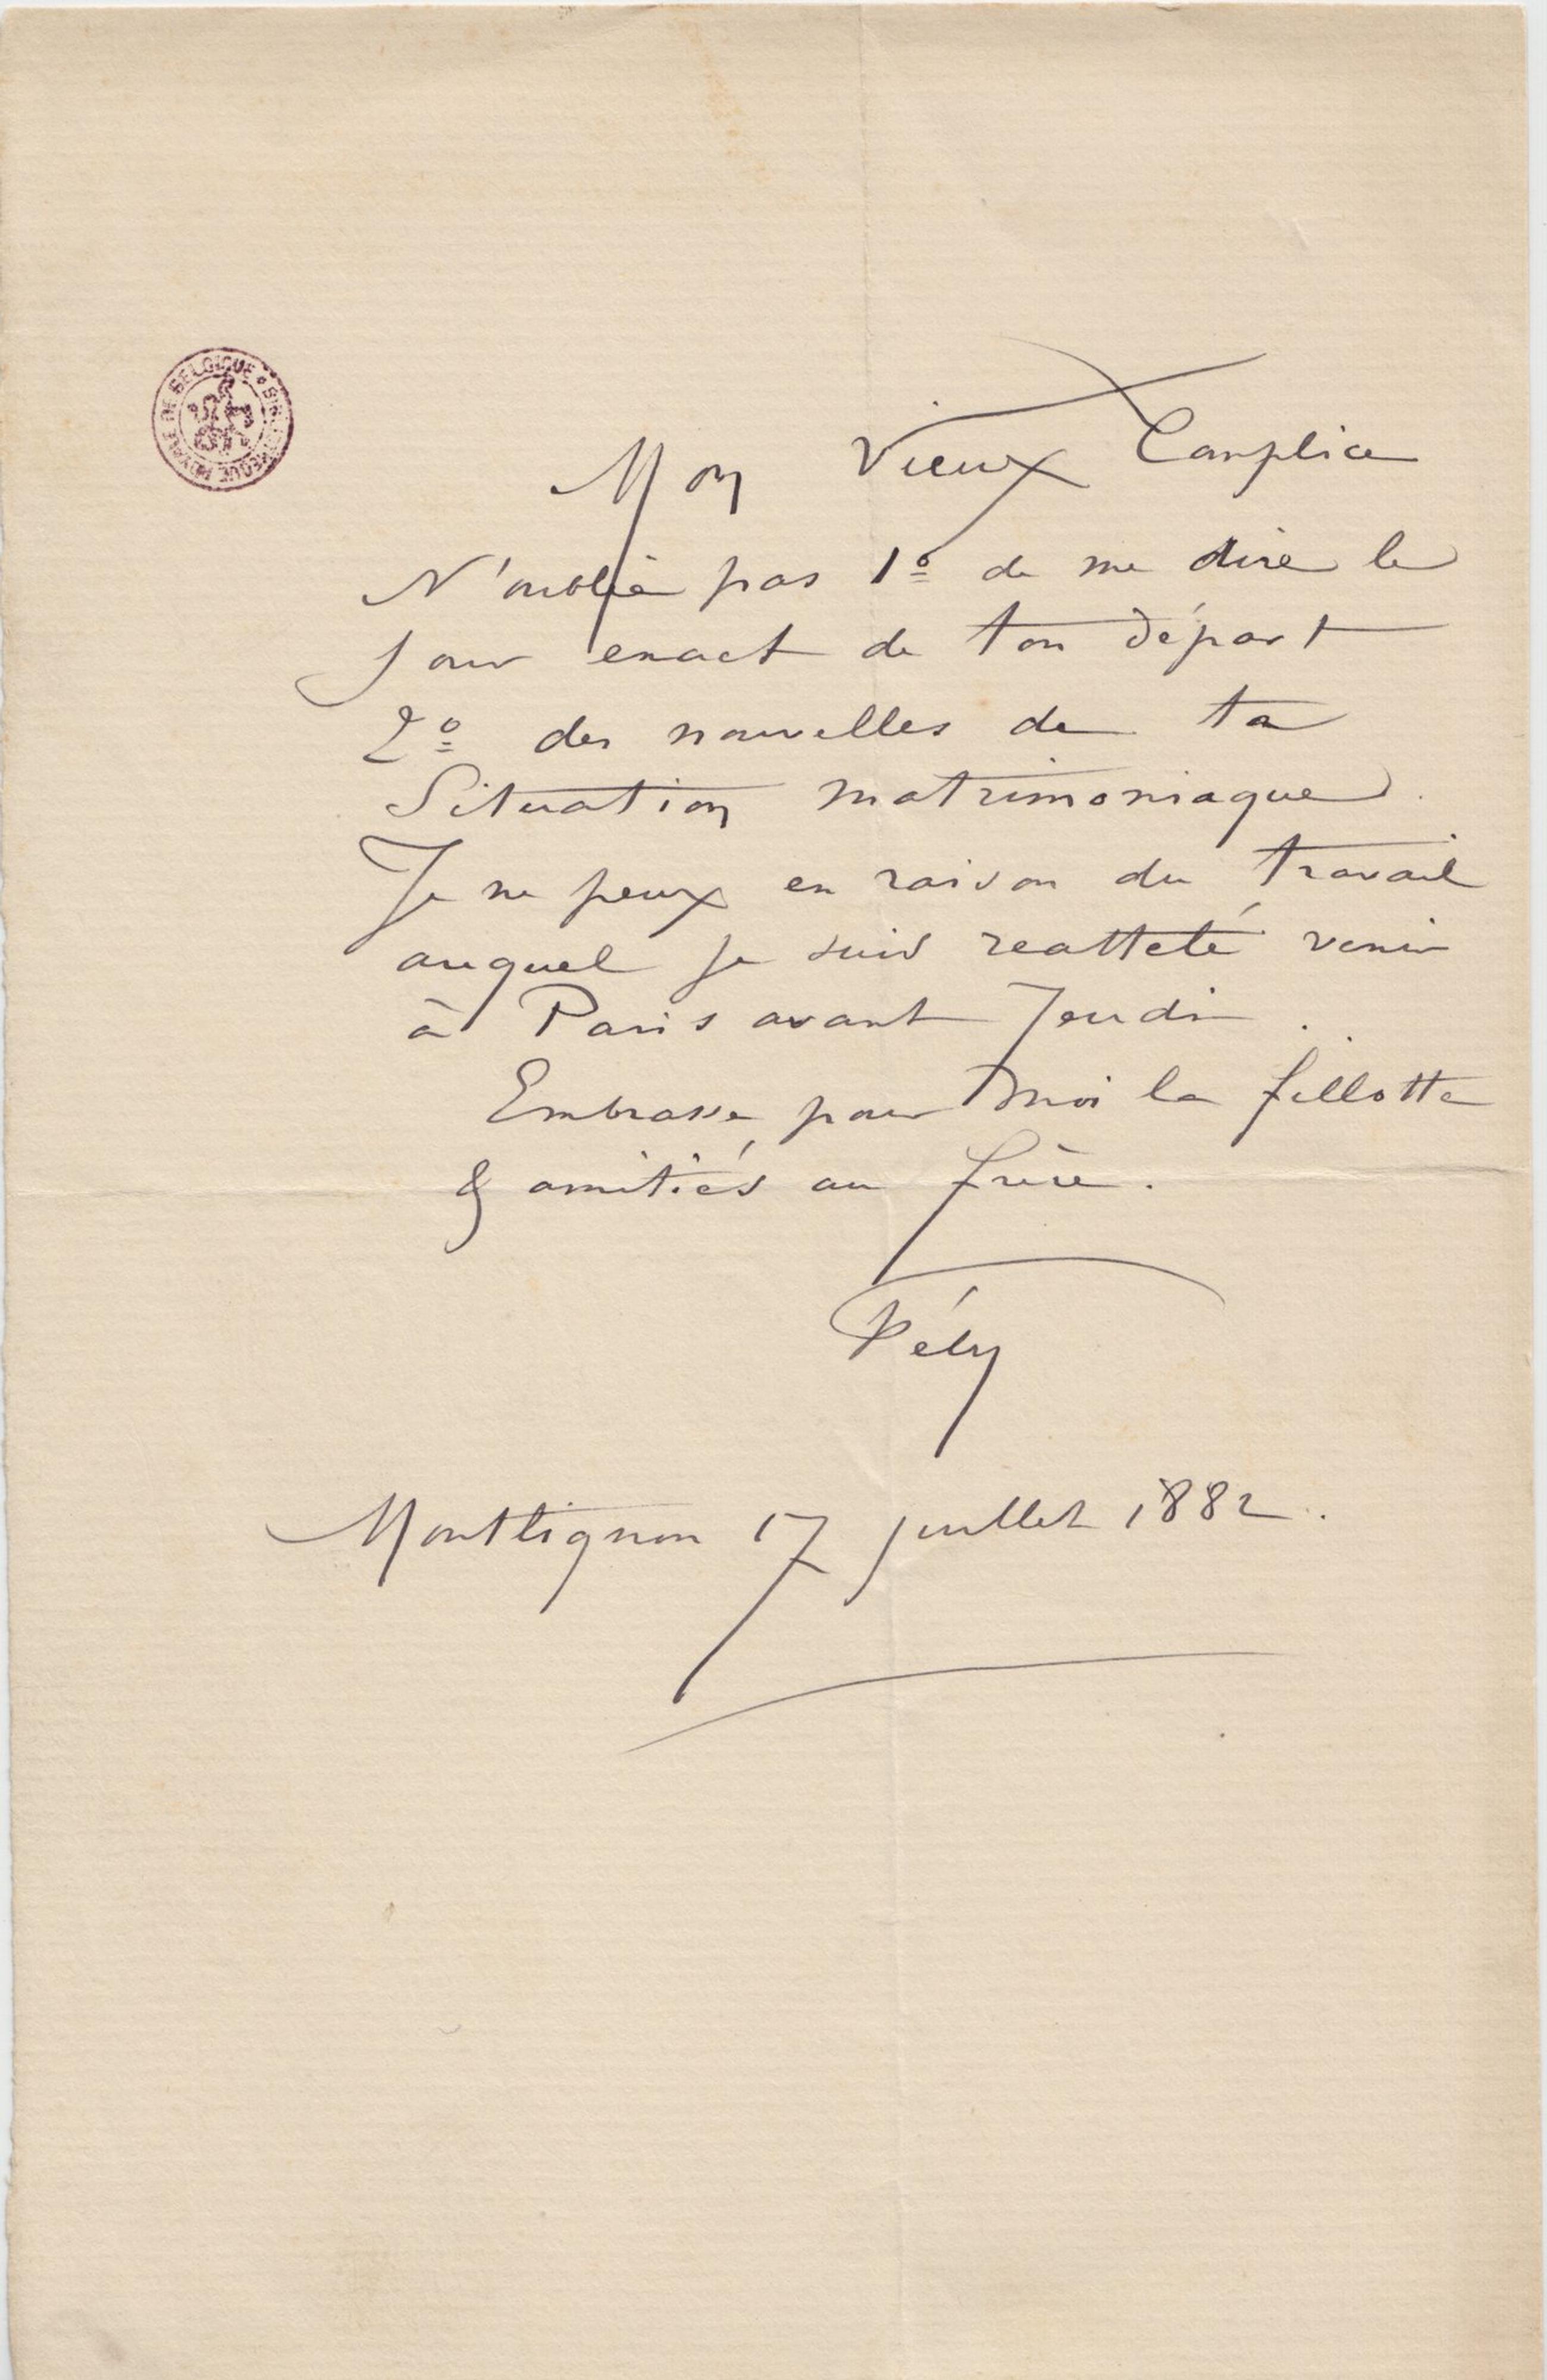 BIBLIOTHEQUE ROYALE DE BELGIQUE
Mon Vieux Complice
N'oublie pas 1º de me dire le
Jour exact de ton départ
2º des nouvelles de ta
Situation matrimoniaque.
Je ne peux en raison du travail
auquel je suis reattelé venir
à Paris avant Jeudi.
Embrasse pour moi la fillotte
& amitiés au frère.
Fély
Montlignon 17 juillet 1882.